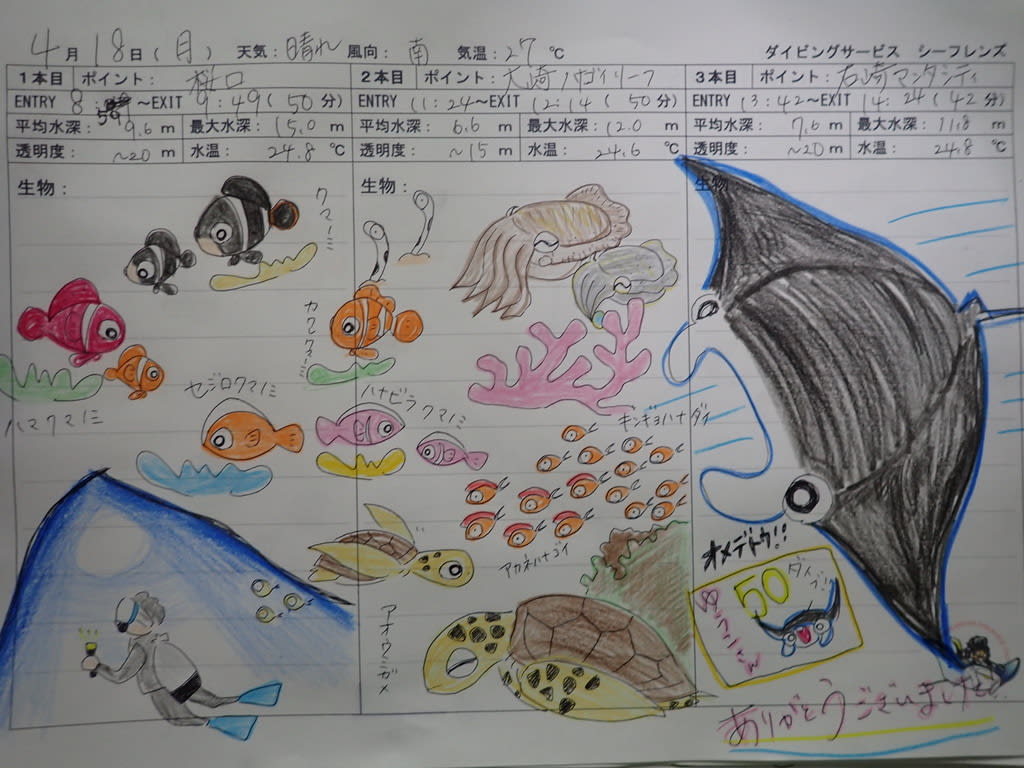 4月18日(月) 天気:晴れ 風向:南 気温:27℃ ダイビングサービス シーフレンズ
1本目 ポイント: 桜口 2本目 ポイント: 大崎ハナゴイリーフ 3本目 ポイント: 石崎マンタシティ
ENTRY 8:59~EXIT 9:49(50分) ENTRY 11:24~EXIT 12:14(50分) ENTRY 13:42~EXIT 14:24(42分)
平均水深: 9.6m 最大水深: 15.0m 平均水深: 6.6m 最大水深: 12.0m 平均水深: 7.6m 最大水深: 11.8m
透明度: ~20m 水温: 24.8℃ 透明度: ~15m 水温: 24.6℃ 透明度: ~20m 水温: 24.8℃
生物: 生物: 生物
クマノミ
カクレクマノミ
セジロクマノミ
ハナビラクマノミ
ハマクマノミ
キンギョハナダイ
アカネハナゴイ
アオウミガメ
オメデトウ!!
50
ダイブ!!
ありがとうございました